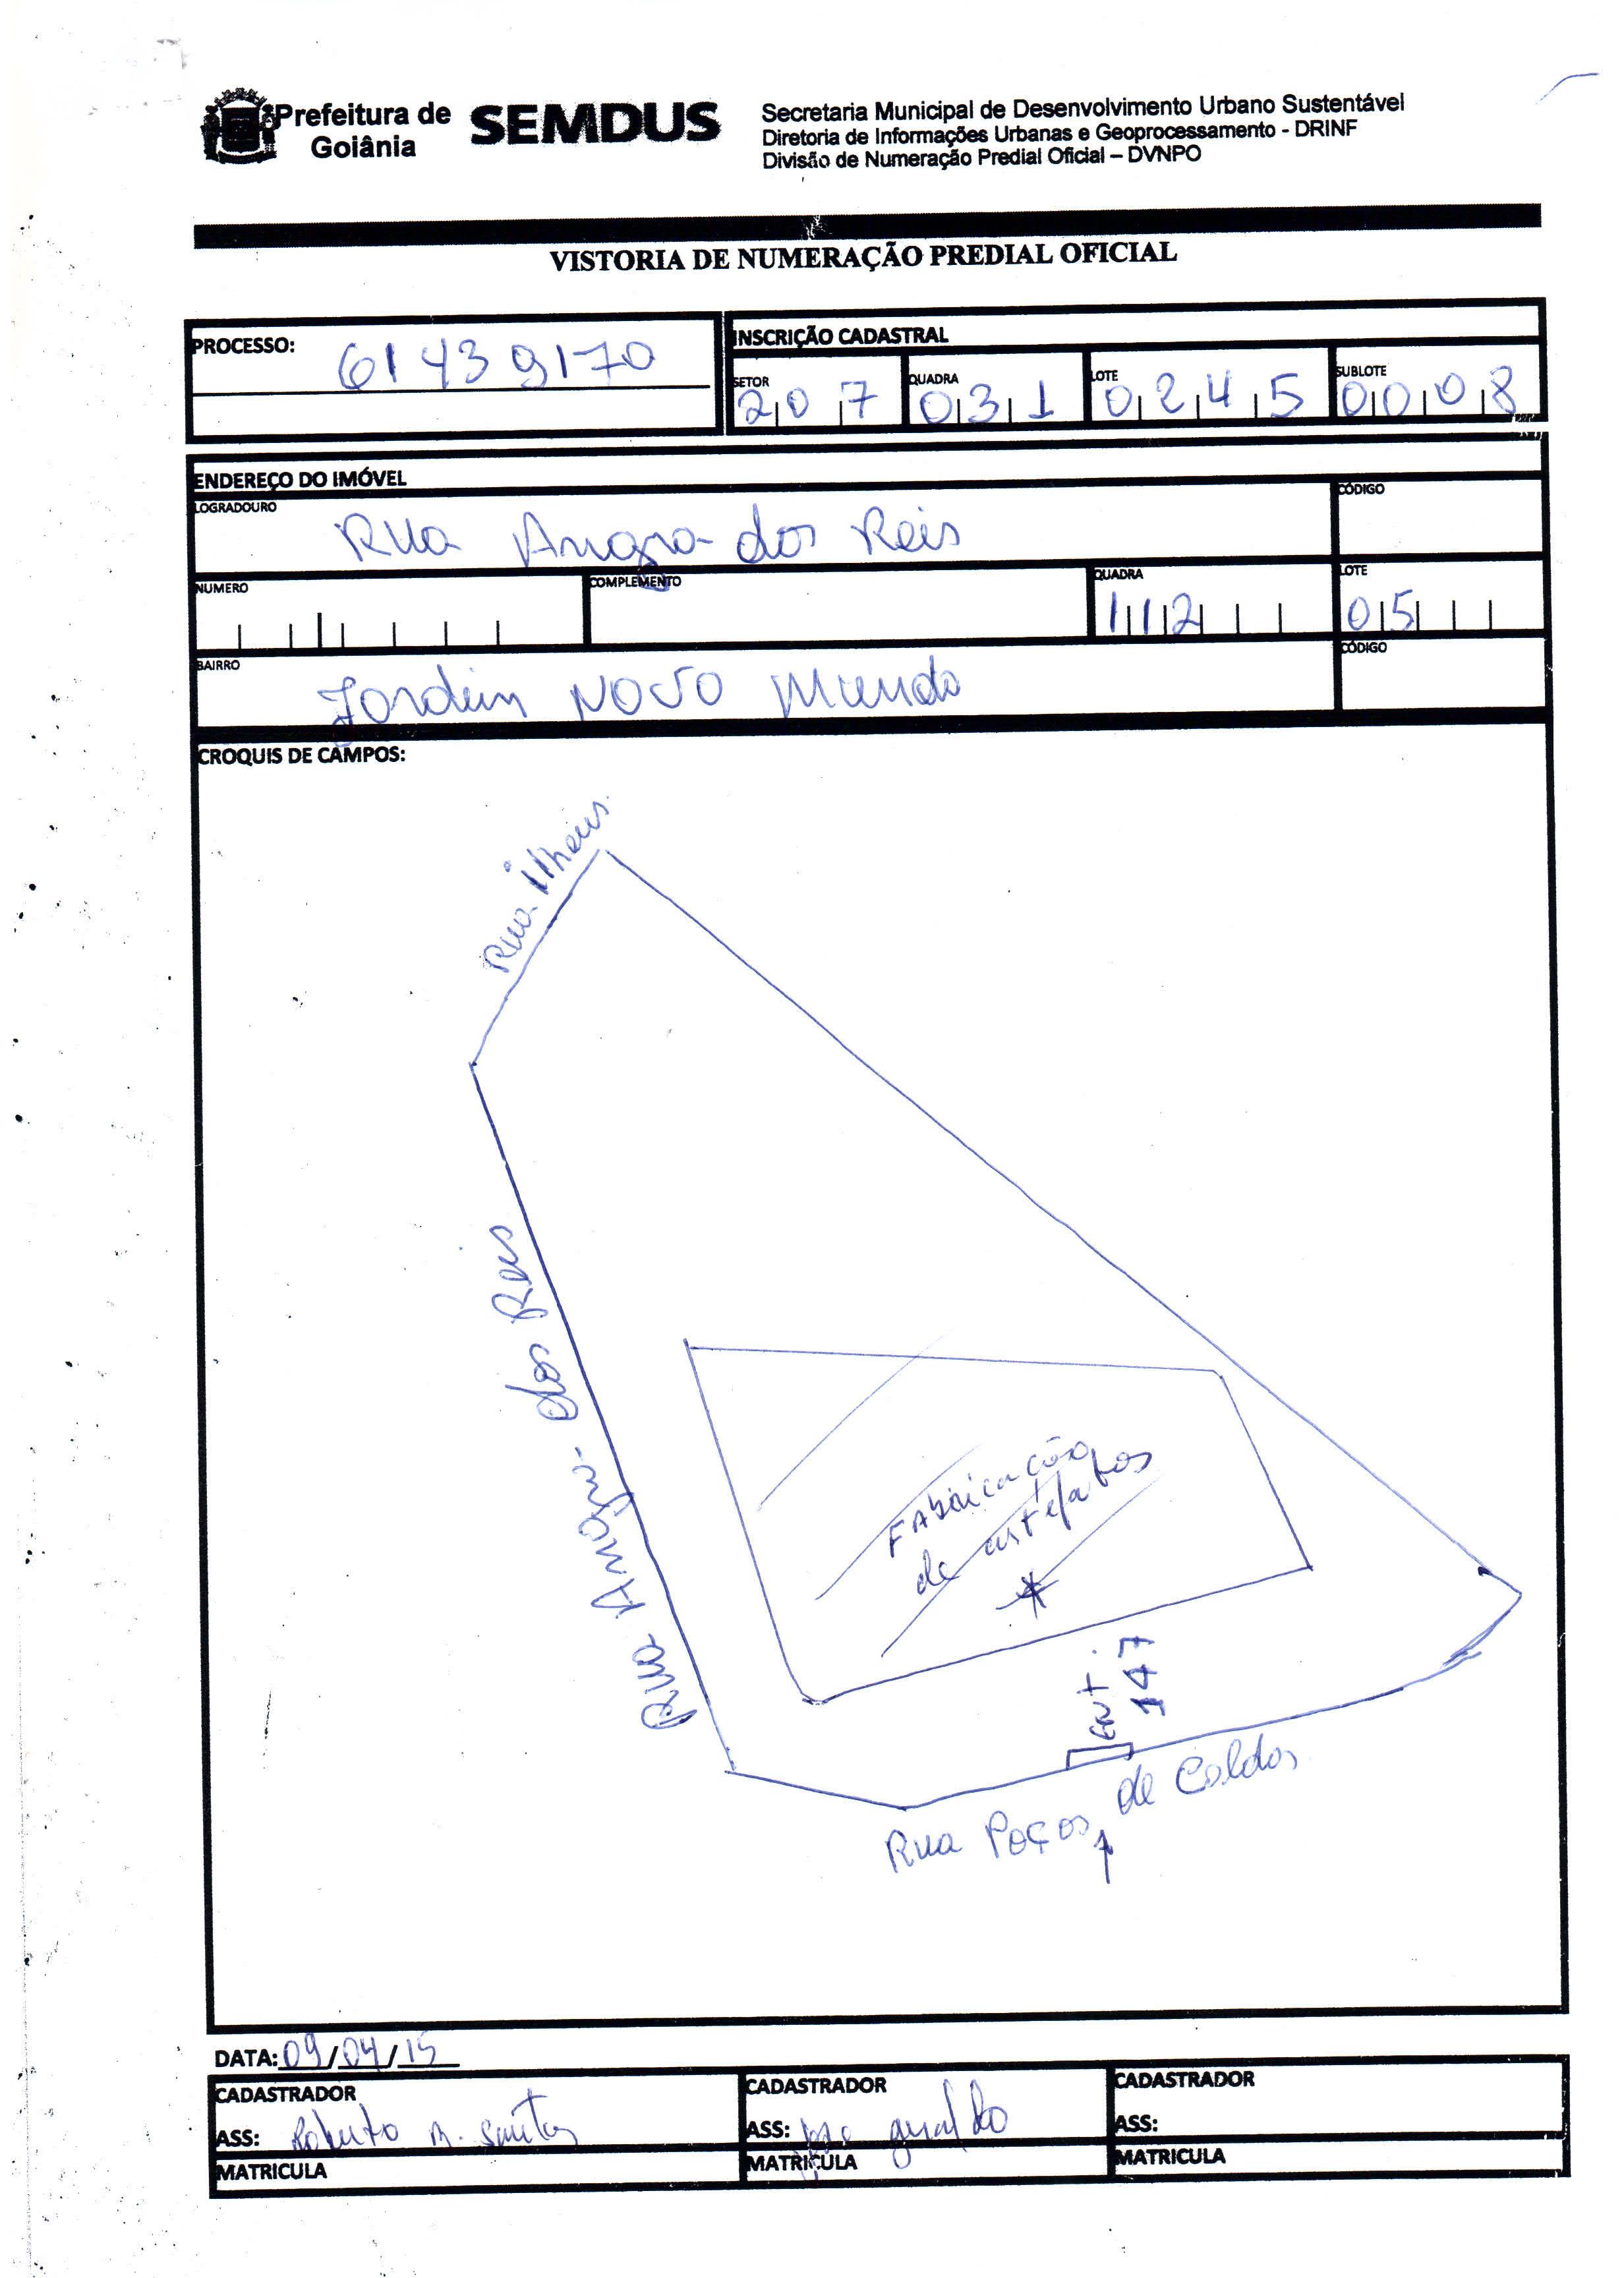 Prefeitura de
Goiânia
SEMDUS
Secretaria Municipal de Desenvolvimento Urbano Sustentável
Diretoria de Informações Urbanas e Geoprocessamento - DRINF
Divisão de Numeração Predial Oficial – DVNPO
VISTORIA DE NUMERAÇÃO PREDIAL OFICIAL
PROCESSO: 61439170
INSCRIÇÃO CADASTRAL
SETOR QUADRA LOTE SUBLOTE
207 031 0245 0008
ENDEREÇO DO IMÓVEL
LOGRADOURO CÓDIGO
Rua Angra dos Reis
NUMERO COMPLEMENTO QUADRA LOTE
112 05
BAIRRO CÓDIGO
Jardim Novo Mundo
CROQUIS DE CAMPOS:
Rua ilheus
Rua Angra dos Reis
Fabricação
de artefatos
Ent.
147
Rua Poços de Caldas
DATA: 09/04/15
CADASTRADOR CADASTRADOR CADASTRADOR
ASS: Roberto M. Santos ASS: jose geraldo ASS:
MATRICULA MATRICULA MATRICULA